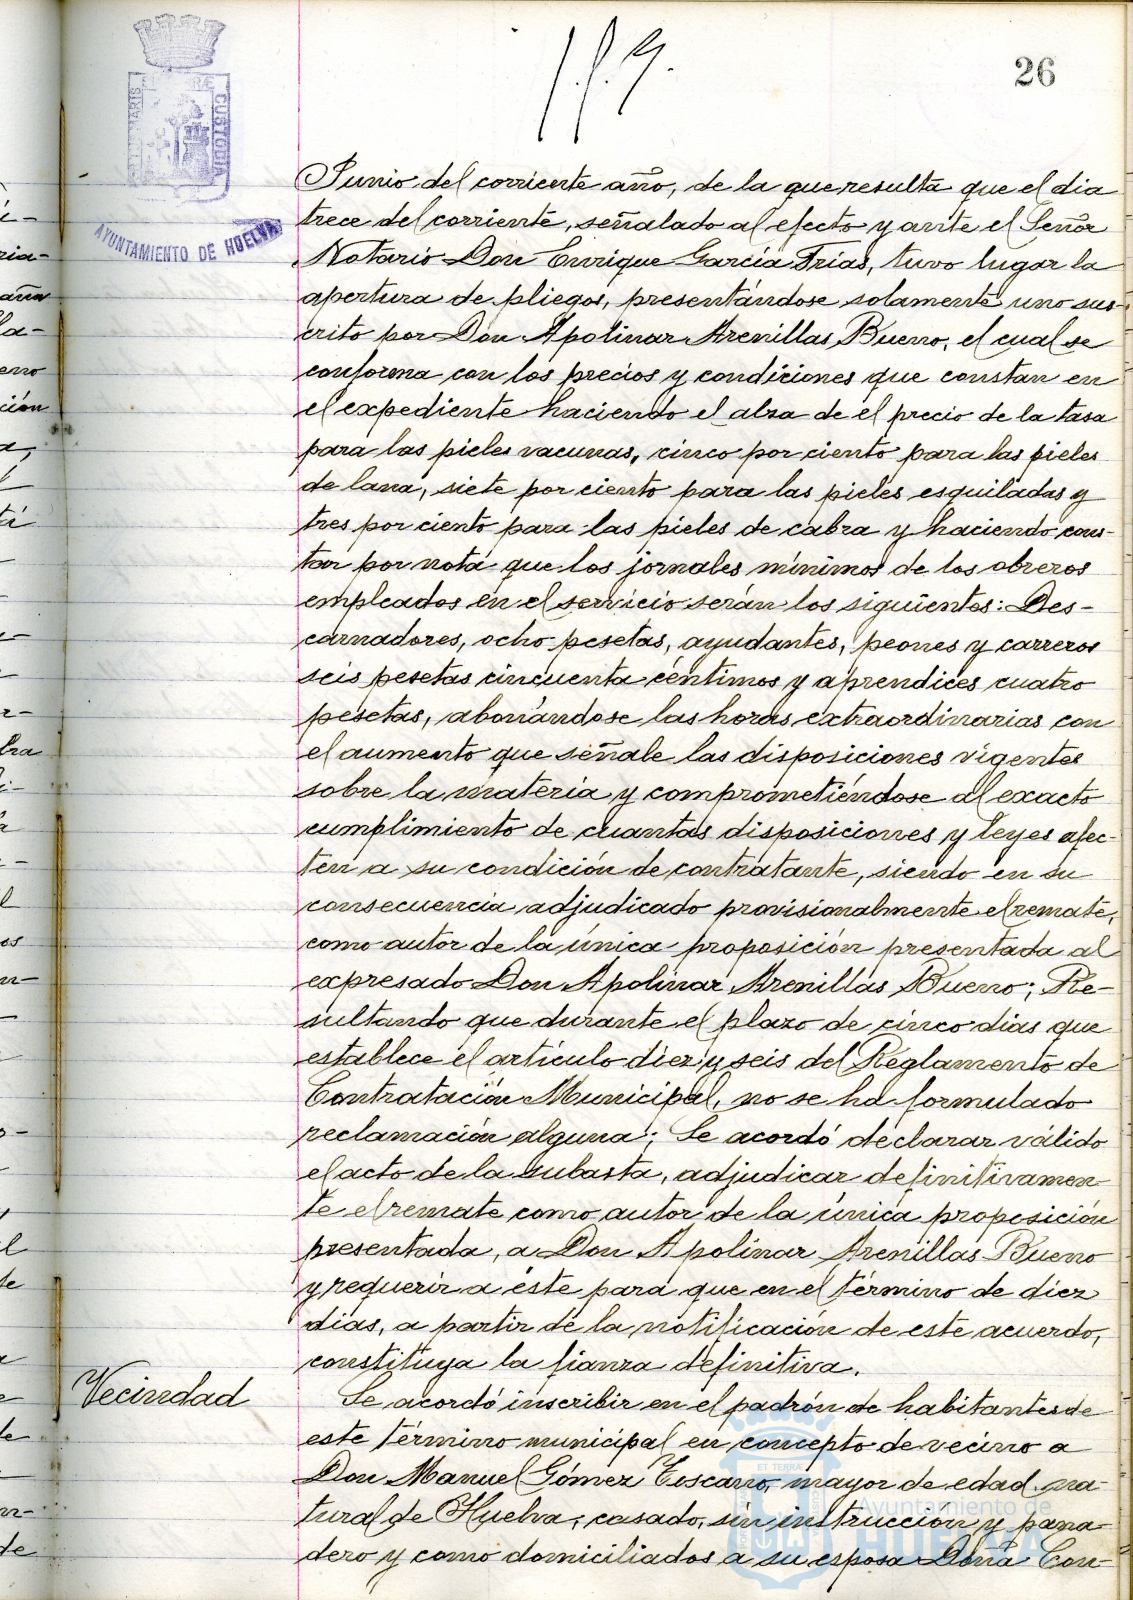 26
PORTUS MARIS ET TERRAE CUSTODIA
AYUNTAMIENTO DE HUELVA
Junio del corriente año, de la que resulta que el dia
trece del corriente, señalado al efecto y ante el Señor
Notario Don Enrique García Frías, tuvo lugar la
apertura de pliegos, presentándose solamente uno sus-
crito por Don Apolinar Arenillas Bueno, el cual se
conforma con los precios y condiciones que constan en
el expediente haciendo el alza de el precio de la tasa
para las pieles vacunas, cinco por ciento para las pieles
de lana, siete por ciento para las pieles esquiladas y
tres por ciento para las pieles de cabra y haciendo cons-
tar por nota que los jornales mínimos de los obreros
empleados en el servicio serán los siguientes: Des-
carnadores, ocho pesetas, ayudantes, peones y carreros
seis pesetas cincuenta céntimos y aprendices cuatro
pesetas, abonándose las horas extraordinarias con
el aumento que señale las disposiciones vigentes
sobre la materia y comprometiéndose al exacto
cumplimiento de cuantas disposiciones y leyes afec-
ten a su condición de contratante, siendo en su
consecuencia adjudicado provisionalmente el remate,
como autor de la única proposición presentada al
expresado Don Apolinar Arenillas Bueno; Re-
sultando que durante el plazo de cinco dias que
establece el artículo diez y seis del Reglamento de
Contratación Municipal, no se ha formulado
reclamación alguna; Se acordó declarar válido
el acto de la subasta, adjudicar definitivamen-
te el remate como autor de la única proposición
presentada, a Don Apolinar Arenillas Bueno
y requerir a éste para que en el término de diez
dias, a partir de la notificación de este acuerdo,
constituya la fianza definitiva.
Vecindad
Se acordó inscribir en el padrón de habitantes de
este término municipal en concepto de vecino a
Don Manuel Gómez Toscano, mayor de edad, na-
tural de Huelva, casado, sin instrucción y pana-
dero y como domiciliados a su esposa Doña Con-
Ayuntamiento de
HUELVA